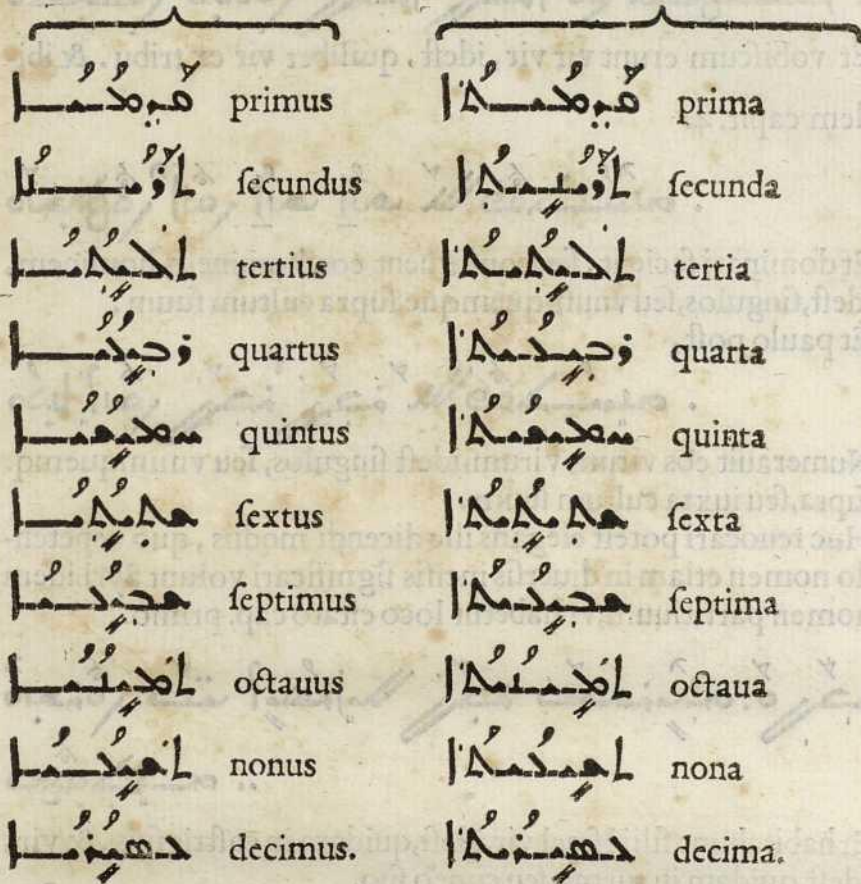 ܩܕܡܝܐ primus ܩܕܡܝܬܐ prima
ܬܪܝܢܐ ſecundus ܬܪܝܢܝܬܐ ſecunda
ܬܠܝܬܝܐ tertius ܬܠܝܬܝܬܐ tertia
ܪܒܝܥܝܐ quartus ܪܒܝܥܝܬܐ quarta
ܚܡܝܫܝܐ quintus ܚܡܝܫܝܬܐ quinta
ܫܬܝܬܝܐ ſextus ܫܬܝܬܝܬܐ ſexta
ܫܒܝܥܝܐ ſeptimus ܫܒܝܥܝܬܐ ſeptima
ܬܡܝܢܝܐ octauus ܬܡܝܢܝܬܐ octaua
ܬܫܝܥܝܐ nonus ܬܫܝܥܝܬܐ nona
ܥܣܝܪܝܐ decimus. ܥܣܝܪܝܬܐ decima.